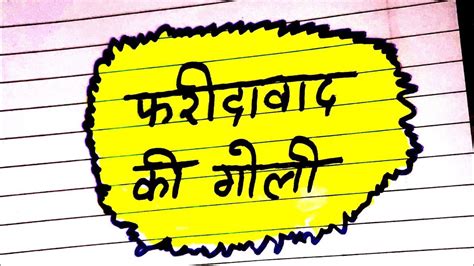 फरीदावाद
की गोली